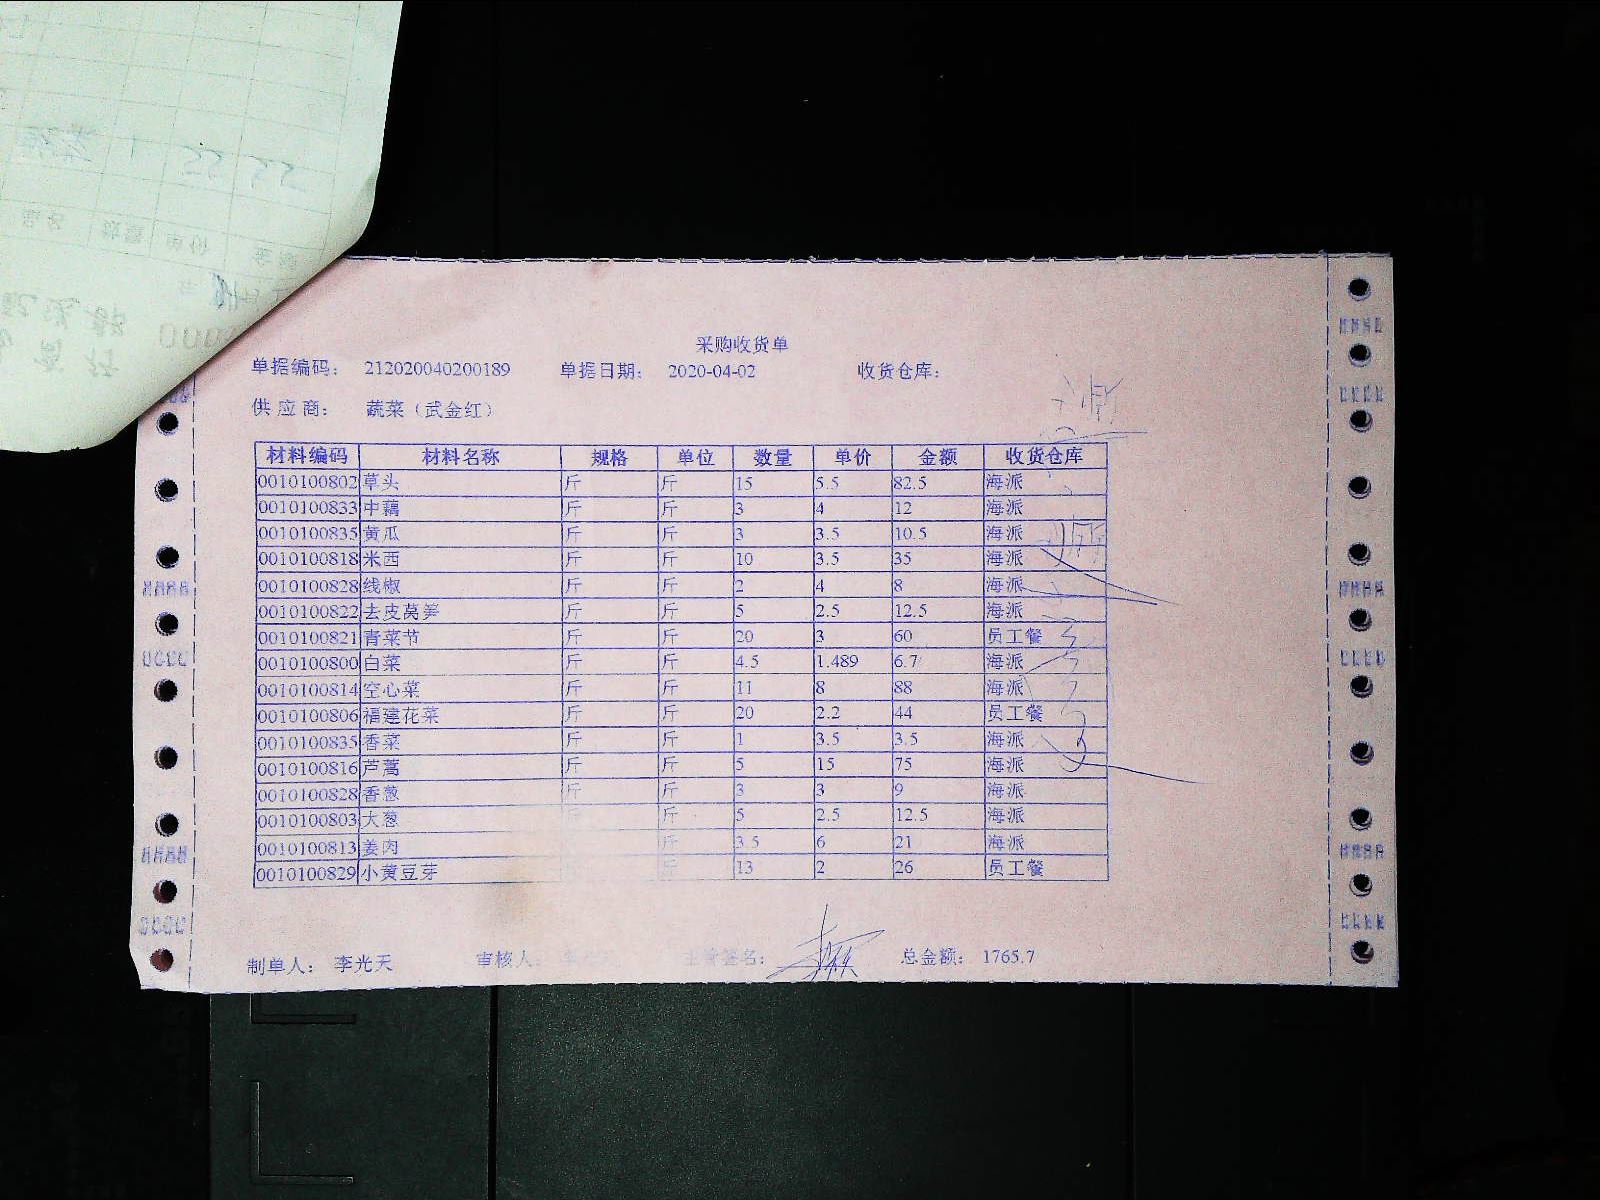 采购收货单
单据编码： 212020040200189 单据日期： 2020-04-02 收货仓库：
供应商： 蔬菜（武金红）
材料编码 材料名称 规格 单位 数量 单价 金额 收货仓库
0010100802 草头 斤 斤 15 5.5 82.5 海派
0010100833 中藕 斤 斤 3 4 12 海派
0010100835 黄瓜 斤 斤 3 3.5 10.5 海派
0010100818 米西 斤 斤 10 3.5 35 海派
0010100828 线椒 斤 斤 2 4 8 海派
0010100822 去皮莴笋 斤 斤 5 2.5 12.5 海派
0010100821 青菜节 斤 斤 20 3 60 员工餐
0010100800 白菜 斤 斤 4.5 1.489 6.7 海派
0010100814 空心菜 斤 斤 11 8 88 海派
0010100806 福建花菜 斤 斤 20 2.2 44 员工餐
0010100835 香菜 斤 斤 1 3.5 3.5 海派
0010100816 芦蒿 斤 斤 5 15 75 海派
0010100828 香葱 斤 斤 3 3 9 海派
0010100803 大葱 斤 5 2.5 12.5 海派
0010100813 姜肉 斤 3.5 6 21 海派
0010100829 小黄豆芽 斤 13 2 26 员工餐
制单人： 李光天 审核人： 签名： 总金额： 1765.7